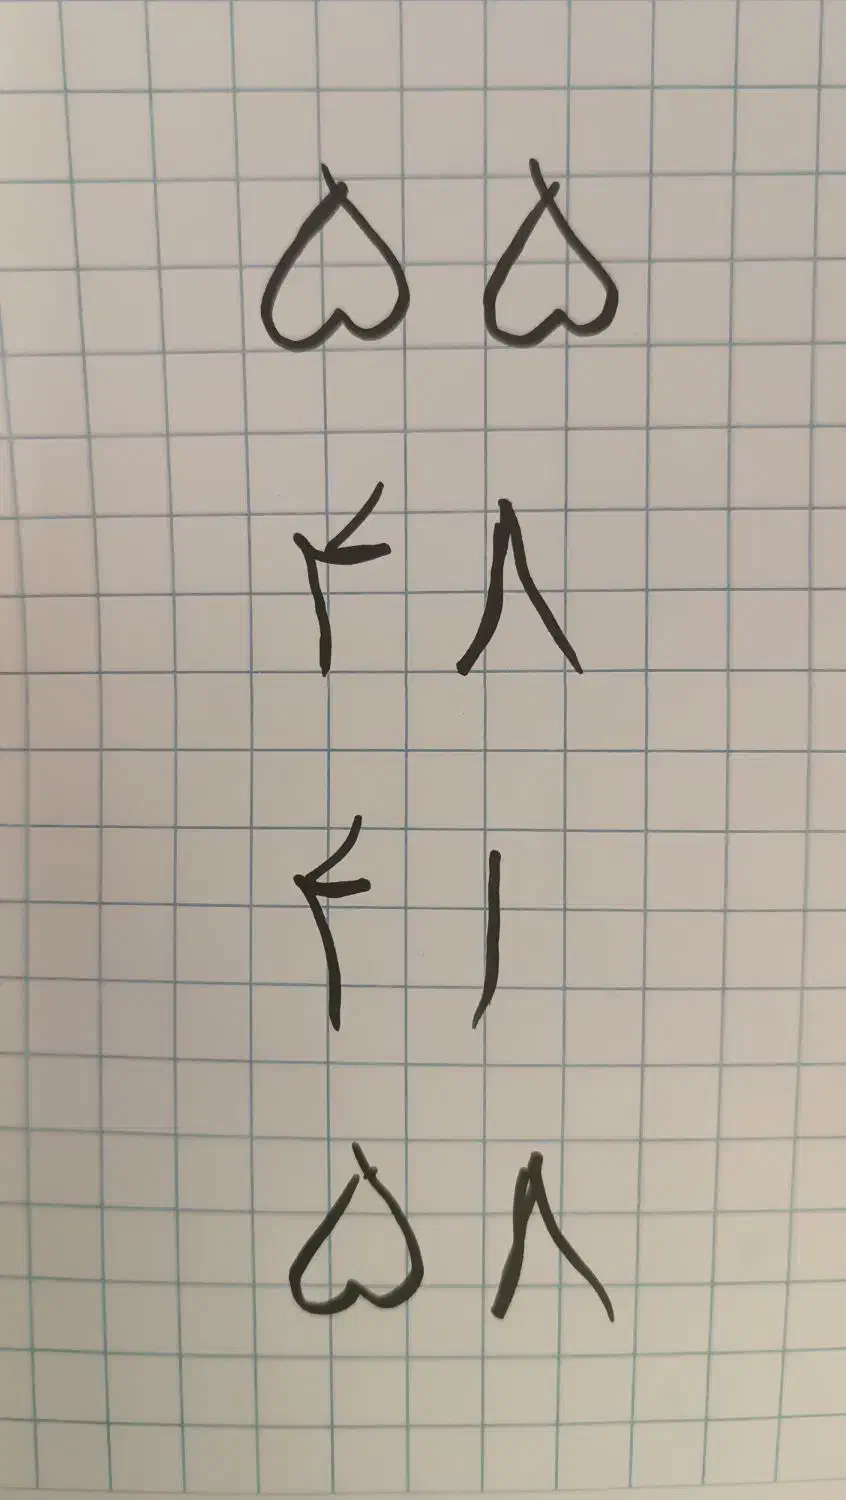 ۵۵
۴۸
۴۱
۵۸